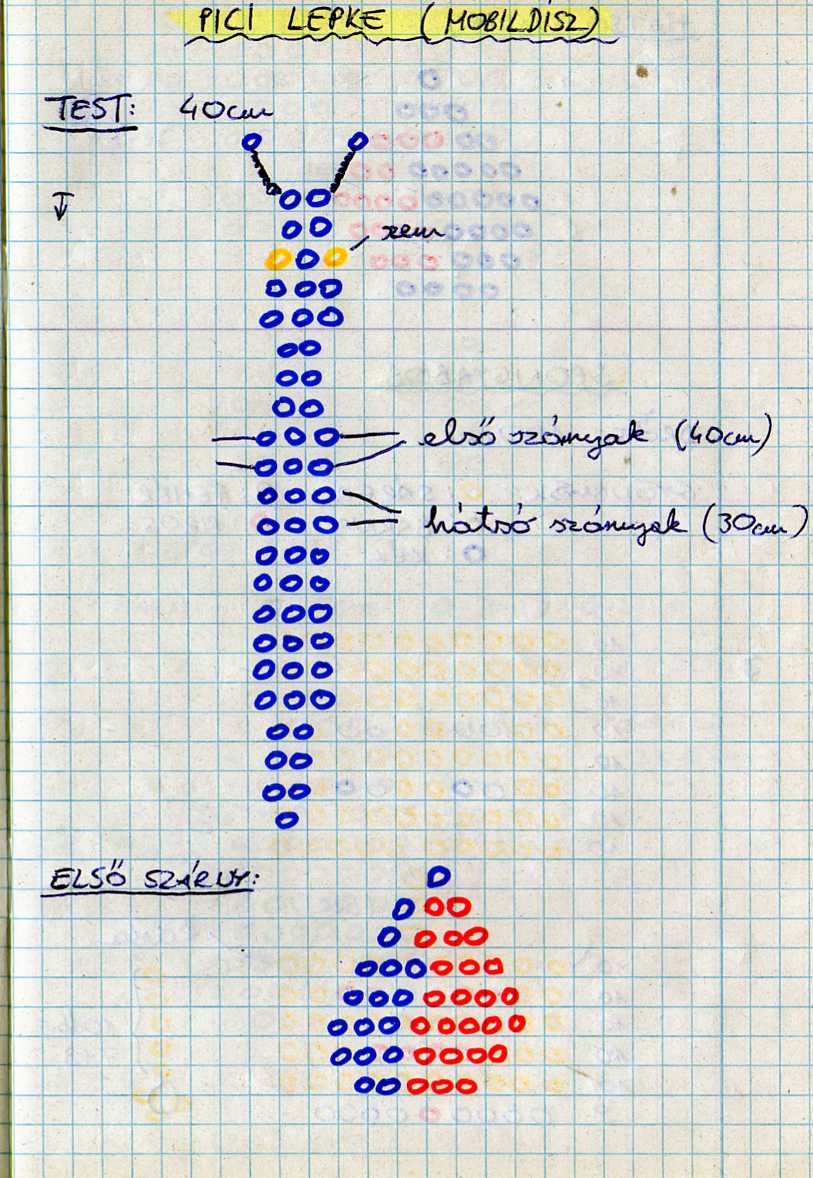 PICI LEPKE (MOBILDÍSZ)
TEST: 40cm
szem
első szárnyak (40cm)
hátsó szárnyak (30cm)
ELSŐ SZÁRNY: